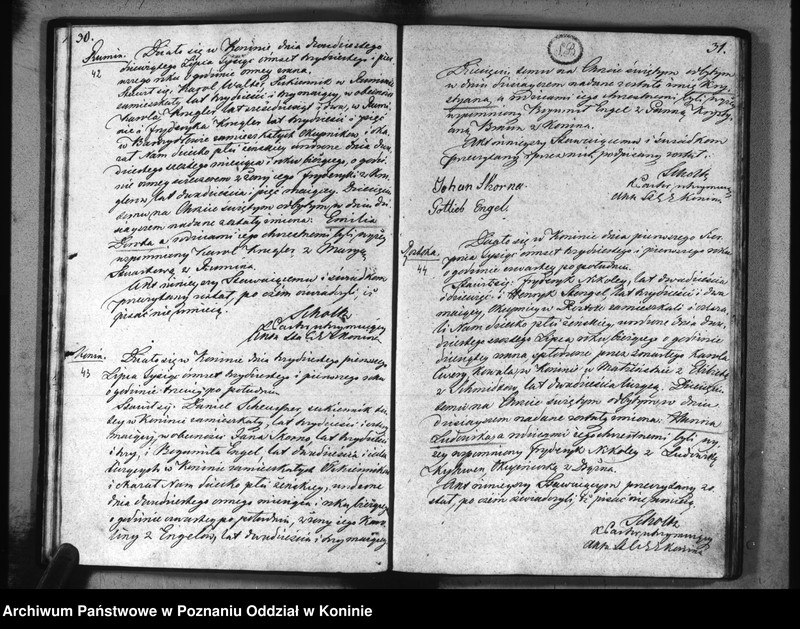 30.
Rumin.
42
Działo się w Koninie dnia dwudziestego
dziewiątego Lipca tysiąc ośmset trzydziestego i pier-
wszego roku o godzinie ósmej zrana.
Stawił się Karol Walter, Sukiennik w Ruminie
zamieszkały lat trzydzieści i trzy mający, w obecności
Karola lat sześćdziesiąt i dwa, w Rumi-
nie i Fryderyka lat trzydzieści i pięć
w zamieszkałych Okupników i oka-
zał Nam dziecko płci żeńskiej urodzone dnia dwu-
dziestego miesiąca i roku bieżącego, o godzi-
nie ósmej wieczorem z żony jego Fryderyki z
lat dwadzieścia i pięć mającej. Dziecięciu
temu na Chrzcie świętym odbytym w dniu dzi-
siejszym nadane zostały imiona: Emilia
a rodzicami jego chrzestnemi byli wyżej
wspomniony Karol z
z Rumina.
Akt niniejszy Stawiącemu i świadkom
przeczytany został, po czém oświadczyli, iż
pisać nie umieją.
Scholtz
Pastor, utrzymujący
Akta Konina
Konin.
43
Działo się w Koninie dnia trzydziestego pierwszego
Lipca tysiąc ośmset trzydziestego i pierwszego roku
o godzinie trzeciej po południu.
Stawił się Daniel sukiennik tu-
tej w Koninie zamieszkały, lat trzydzieści i
mający, w obecności Jana Skorna, lat trzydzieści
i trzy, i Bogumiła Engel, lat dwadzieścia i
liczących w Koninie zamieszkałych Sukienników
i okazał Nam dziecko płci żeńskiej, urodzone
dnia dwudziestego ósmego miesiąca i roku bieżącego
o godzinie czwartej po południu, z żony jego Karo-
liny z Engelów, lat dwadzieścia i trzy mającej.
31.
Dziecięciu temu na Chrzcie świętym odbytym
w dniu dzisiejszym nadane zostało imię Kry-
styana, a rodzicami jego chrzestnemi byli wyżej
wspomniony Engel z Panną Krysty-
aną w Konina.
Akt niniejszy Stawiącemu i świadkom
przeczytany i przez nich podpisany został.
Scholtz
Pastor, utrzymują-
Akta Konina
Johan Skorna.
Gotlieb Engel.
44
Działo się w Koninie dnia pierwszego Sier-
pnia tysiąc ośmset trzydziestego i pierwszego roku
o godzinie czwartej po południu.
Stawił się: Fryderyk Nikoley, lat dwadzieścia
i dziewięć i Henryk Stengel, lat trzydzieści i dwa
mający, Okupnicy w zamieszkali i okaza-
li Nam dziecko płci żeńskiej urodzone dnia dwu-
dziestego Lipca roku bieżącego o godzinie
dziesiątej zrana spłodzone przez zmarłego Karola
Kowala, w Koninie w Małżeństwie z Elżbietą
z lat dwadzieścia liczącą. Dziecięciu
temu na Chrzcie świętym odbytym w dniu
dzisiejszym nadane zostały imiona: Hanna
Ludowika, a rodzicami jego chrzestnemi byli wy-
żej wspomniony Fryderyk Nikoley z Ludowiką
Okupniczką z
Akt niniejszy Stawiącym przeczytany zo-
stał, po czém oświadczyli, iż pisać nie umieją.
Scholtz
Pastor, utrzymujący
Akta Konina
Archiwum Państwowe w Poznaniu Oddział w Koninie